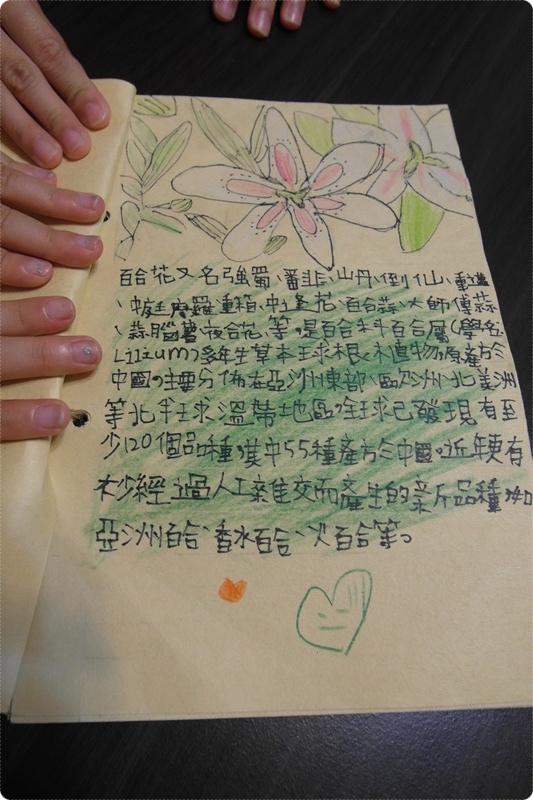 百合花又名強蜀、番韭、山丹、倒仙、重邁
、中庭、摩羅、重箱、中逢花、百合蒜、大師傅蒜
、蒜腦薯、夜合花、等。是百合科百合屬(學名
Lilium)多年生草本球根、植物。原產於
中國。主要分佈在亞洲東部、歐洲、北美洲
等北半球溫帶地區。全球已發現有至
少120個品種。其中55種產於中國。近年更有
不少經過人工雜交而產生的新品種。如
亞洲百合、香水百合、火百合等。